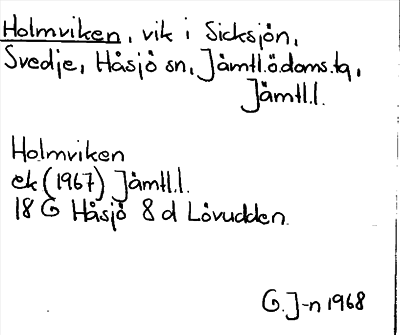 Holmviken, vik i Sicksjön,
Svedje, Håsjö sn, Jämtl.ö.doms.tg,
Jämtl.l.
Holmviken
ek (1967) Jämtl.l.
18 G Håsjö 8 d Lövudden.
G. J-n 1968